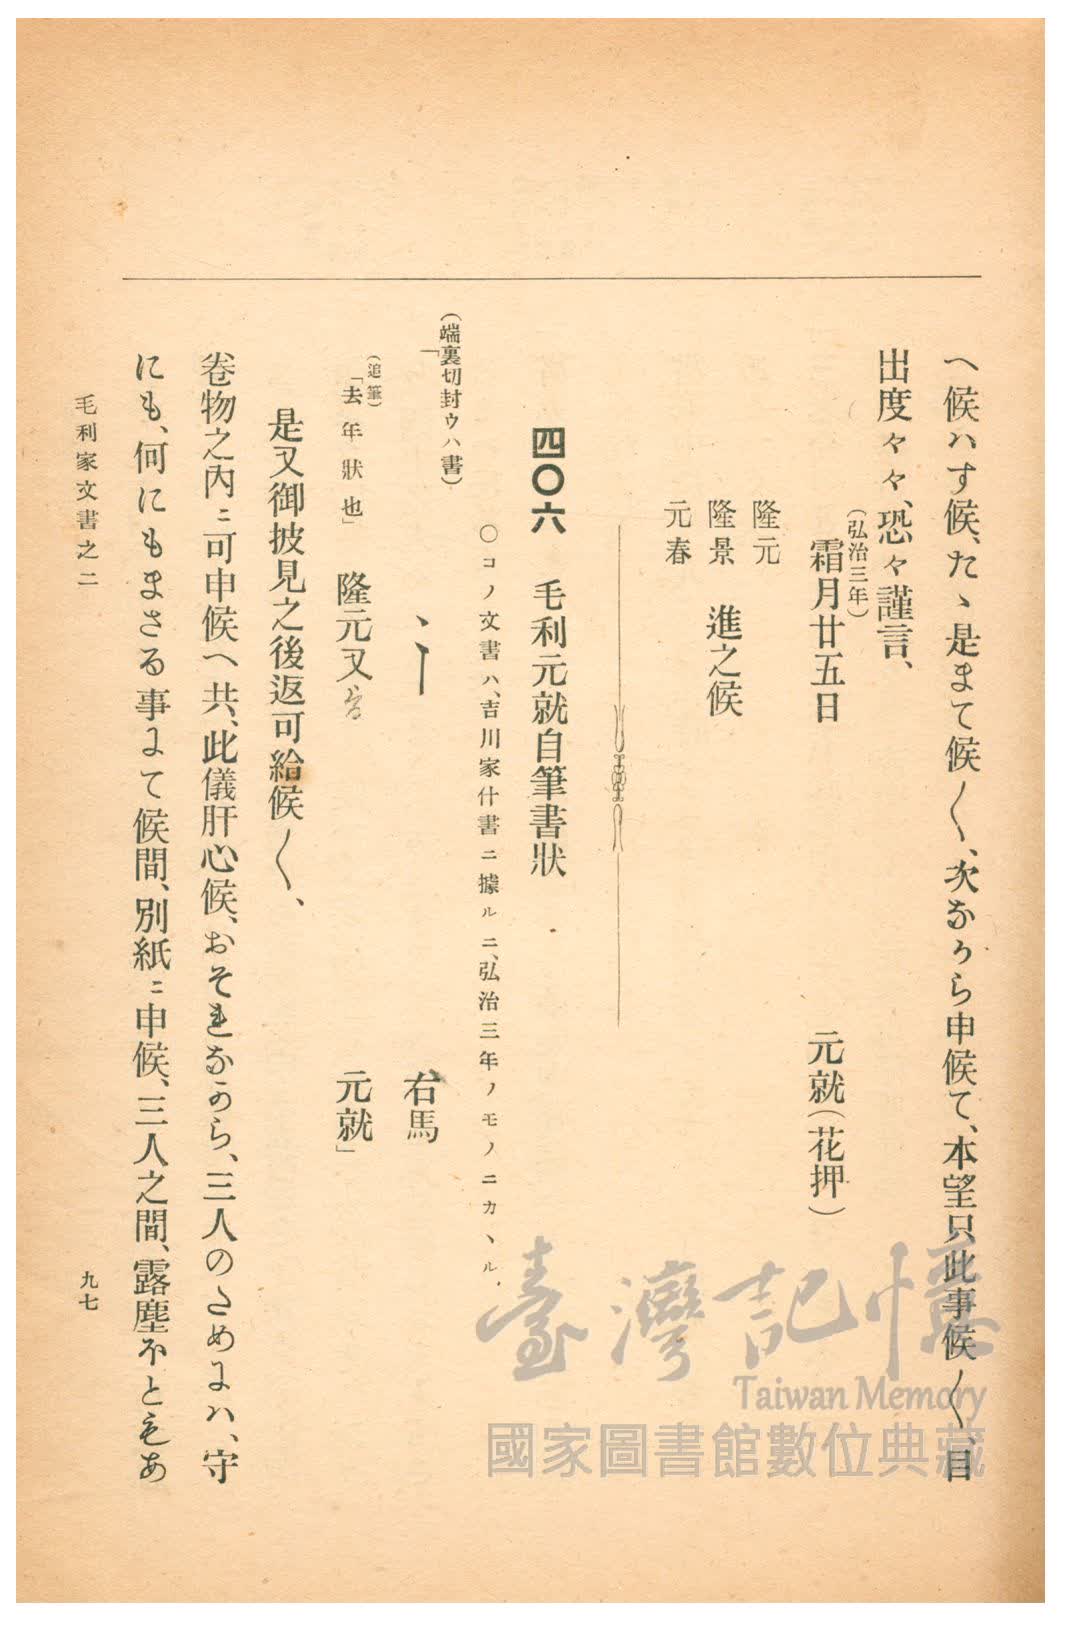 へ候ハす候、たゝ是まて候〱、次なから申候て、本望只此事候〱、目
出度々々、恐々謹言、
(弘治三年)
霜月廿五日　元就(花押)
隆元
隆景　進之候
元春
四〇六　毛利元就自筆書狀
〇コノ文書ハ、吉川家什書ニ據ルニ、弘治三年ノモノニカヽル、
(端裏切封ウハ書)
「　　右馬
(追筆)
「去年狀也」　隆元又　元就」
是又御披見之後返可給候〱、
卷物之內ニ可申候へ共、此儀肝心候、おそれなから、三人のためにハ、守
にも、何にもまさる事にて候間、別紙ニ申候、三人之間、露塵ほともあ
毛利家文書之二
九七
臺灣記憶
Taiwan Memory
國家圖書館數位典藏